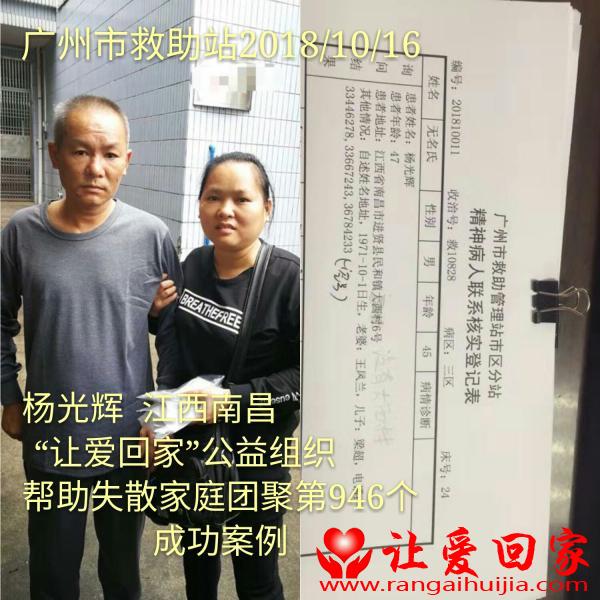 广州市救助站2018/10/16
BREATHEFREE
杨光辉 江西南昌
“让爱回家”公益组织
帮助失散家庭团聚第946个
成功案例
广州市救助管理站市区分站
精神病人联系核实登记表
编号：201810011 收治号：救10828 病区：三区 床号：24
姓名 无名氏 性别 男 年龄 45 病情诊断
询问结果
患者姓名：杨光辉
患者年龄：47
患者地址：江西省南昌市进贤县民和镇大西村6号
其他情况：自述姓名地址，1971-10-1日生，老婆：王凤兰，儿子：梁超，电
33446278，33667243，36784233
让爱回家
www.rangaihuijia.com